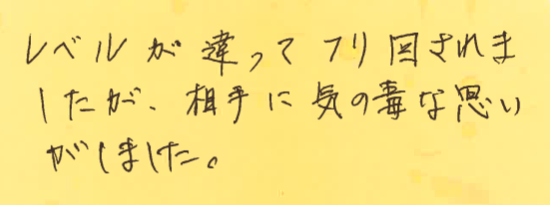 レベルが違ってフリ回されま
したが、相手に気の毒な思い
がしました。